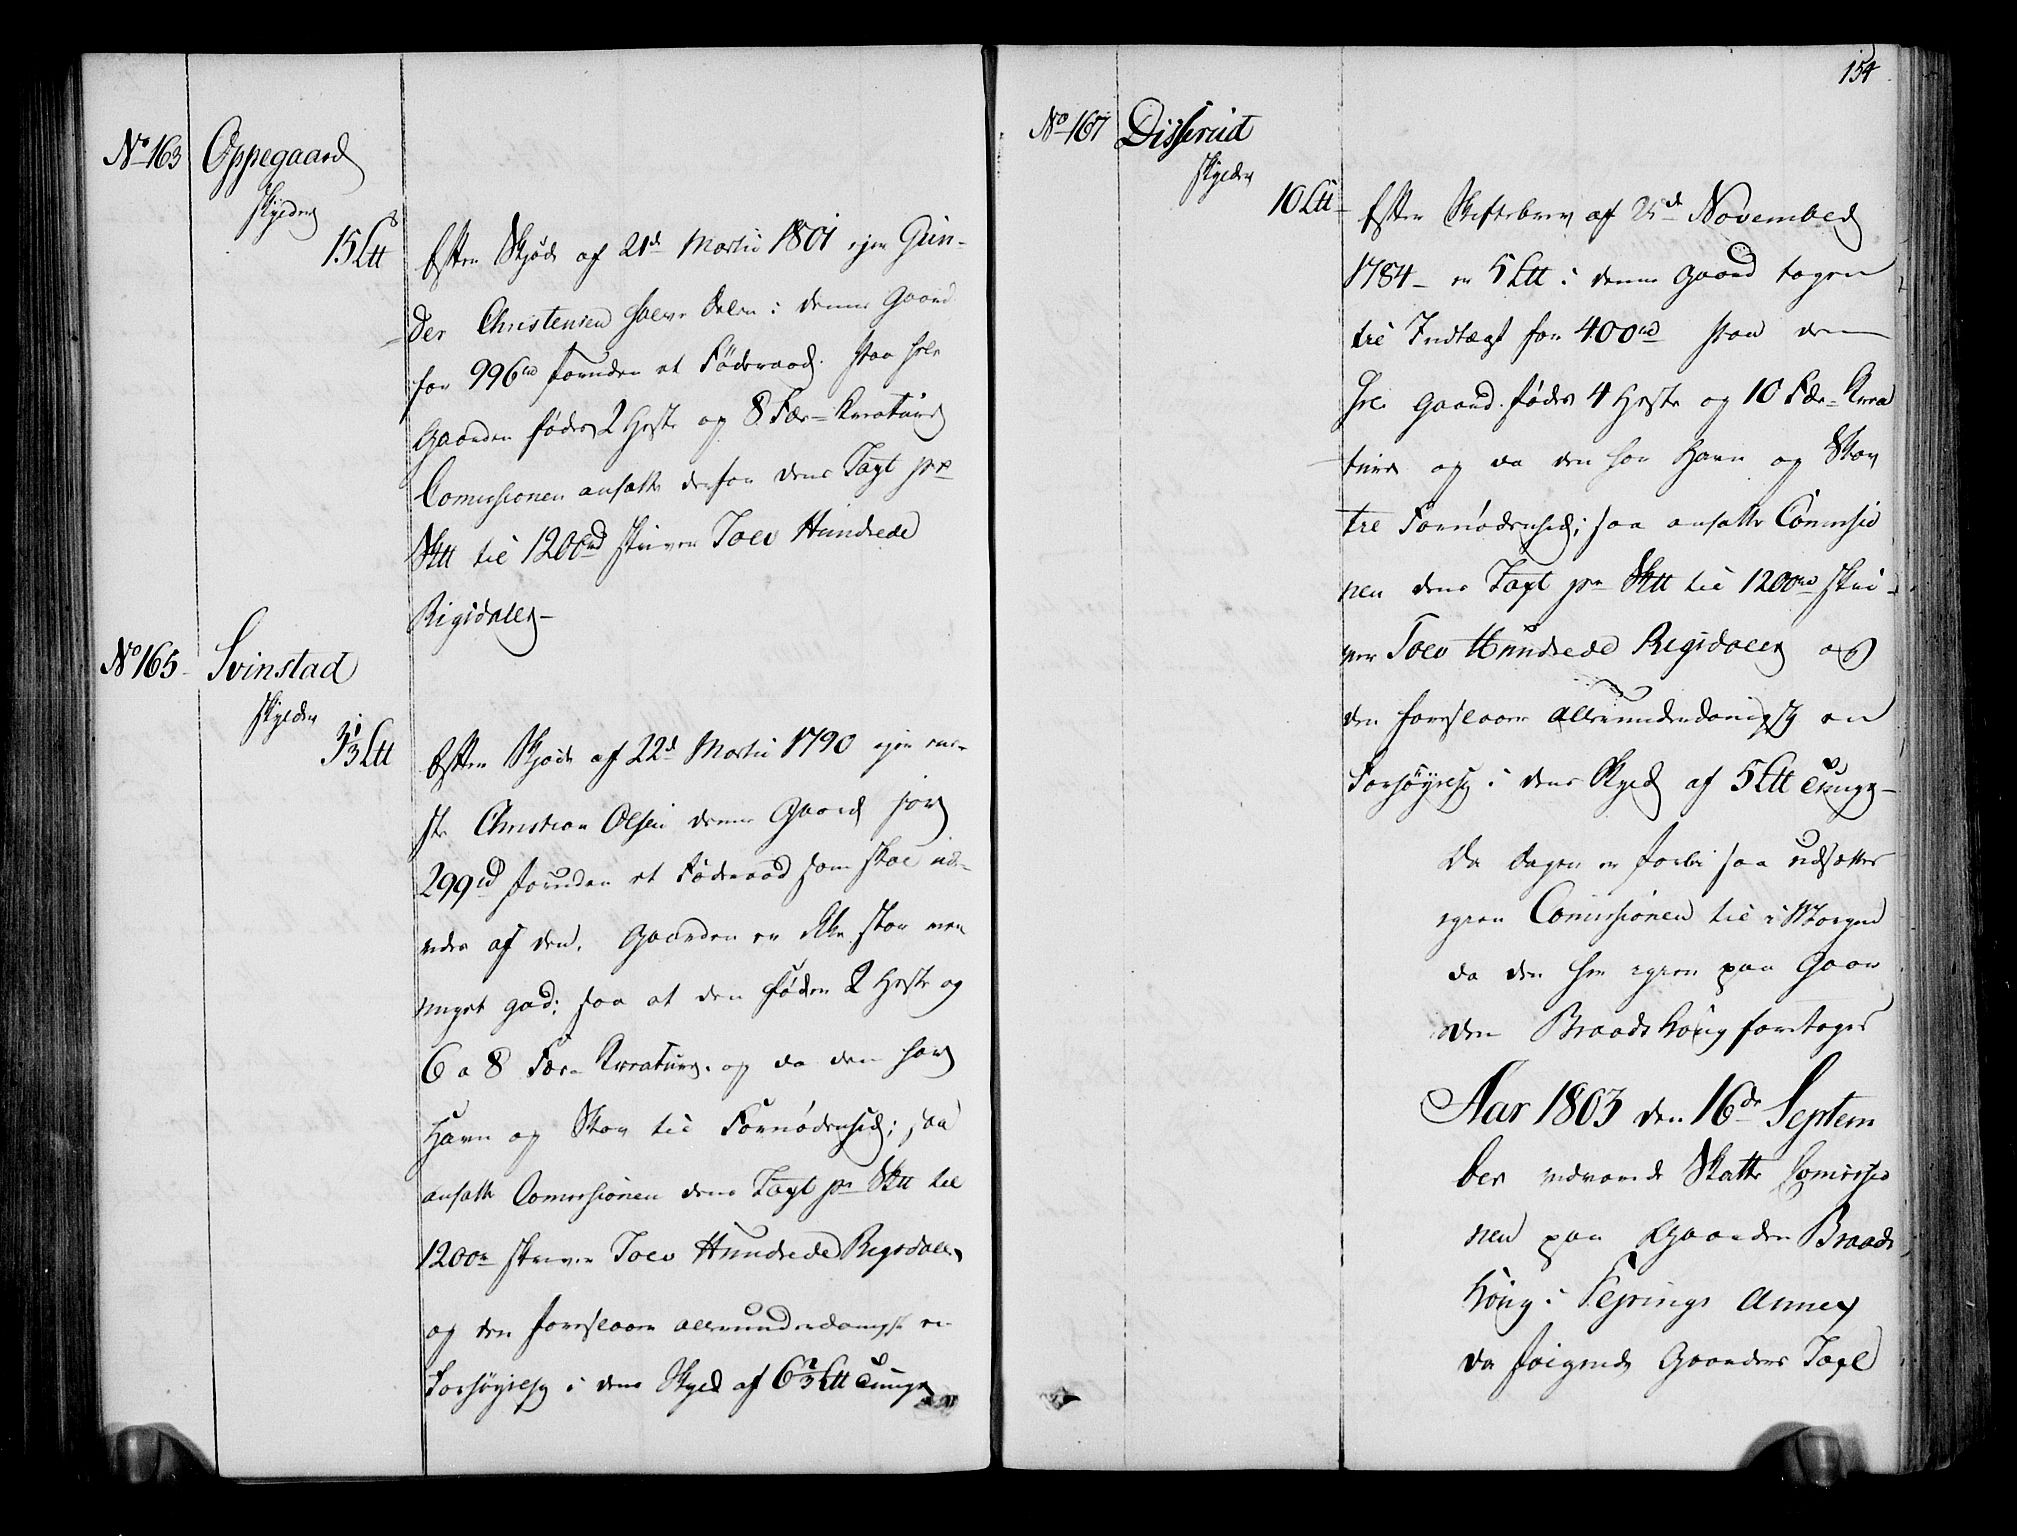 No 163 Oppegaard
skylder
15 Ltt
Efter Skjøde af 21d Martii 1801 ejer Gun-
der Christensen halve Delen i denne Gaard
for 996rd foruden et Føderaad. Paa hele
Gaarden fødes 2 Heste og 8 Fæe-Kreature
Comissionen ansatte derfor dens Taxt pr
Sktt til 1200rd skriver Tolv Hundrede
Rigsdaler-
No 165- Svinstad
skylder
3 1/3 Ltt
Efter Skjøde af 22d Martii 1790 ejer
Christian Olsen denne Gaard for
299rd foruden et Føderaad som skal ud-
redes af den. Gaarden er ikke stor men
meget god; saa at den føder 2 Heste og
6 a 8 Fæe-Kreature. og da den har
Havn og Skov til Fornødenhed; saa
ansatte Comissionen dens Taxt pr Sktt til
1200rd skriver Tolv Hundrede Rigsdaler,
og den foreslaaer allerunderdanigst en
Forhøyelse i dens Skyld af 6 2/3 Ltt Tunge
154
No 167 Disserud
skylder
10 Ltt-
Efter Skiftebrev af 25d November
1784- er 5 Ltt i denne Gaard tagen
til Indtægt for 400rd Paa den
hele Gaard fødes 4 Heste og 10 Fæe-Krea
ture og da den har Havn og Skov
til Fornødenhed; saa ansatte Comissio
nen dens Taxt pr Sktt til 1200rd skri-
ver Tolv Hundrede Rigsdaler og
den foreslaaer allerunderdanigst en
Forhøyelse i dens Skyld af 5 Ltt Tunge-
Da Dagen er forbi saa udsætter
igien Comissionen til i Morgen
da den her igien paa Gaar
den Braadshoug foretages
Aar 1803 den 16de Septem
ber Skatte Comissio
nen paa Gaarden Braads
houg i Annex
da følgende Gaardes Taxt